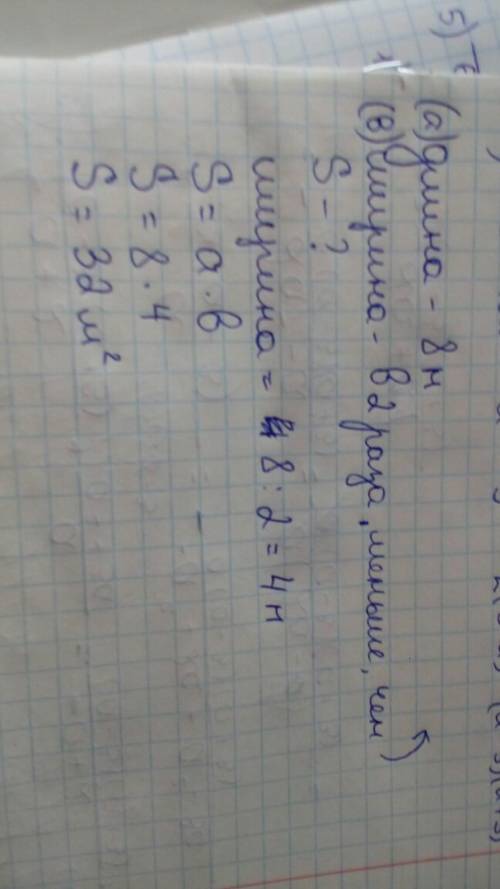 5)
(а) длина - 8 м
(в) ширина - в 2 раза, меньше, чем
S - ?
ширина = 8 : 2 = 4 м
S = а · в
S = 8 · 4
S = 32 м²